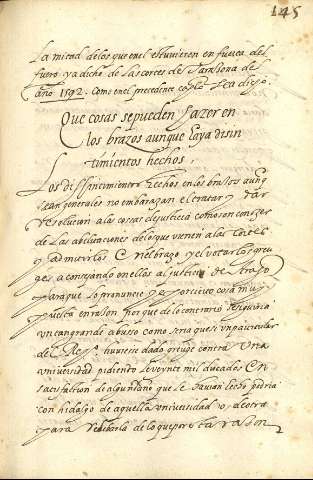 145
La mitad de los que en el estuvieren en fuerça del
fuero ya dicho de las cortes de Taraçona del
año 1592. como en el precedente cap.lo sea dicho.
Que cosas se pueden hazer en
los brazos aunque haya disin
timientos hechos,
Los dissentimientos hechos en los brazos aunq
sean generales no embarazan el tratar y dar
resolucion a las cosas de justicia como son conocer
de las abiliaciones de los que vienen a las Cortes
y admitirlos en el brazo y el votar los greu
ges aconsejando en ellos al justicia de Arago
para que lo pronuncie y es por cierto cosa muy
puesta en razon porque de lo contrario se siguiria
un tan grande abusso como seria que si un particular
del Rey.o huuiese dado greuge contra una
uniuersidad pidiendole veynte mil ducados en
satisfaction de algun daño que le hauian hecho podria
con hidalgo de aquella uniuersidad o, de otra
para rebibarla de lo que por esta razon